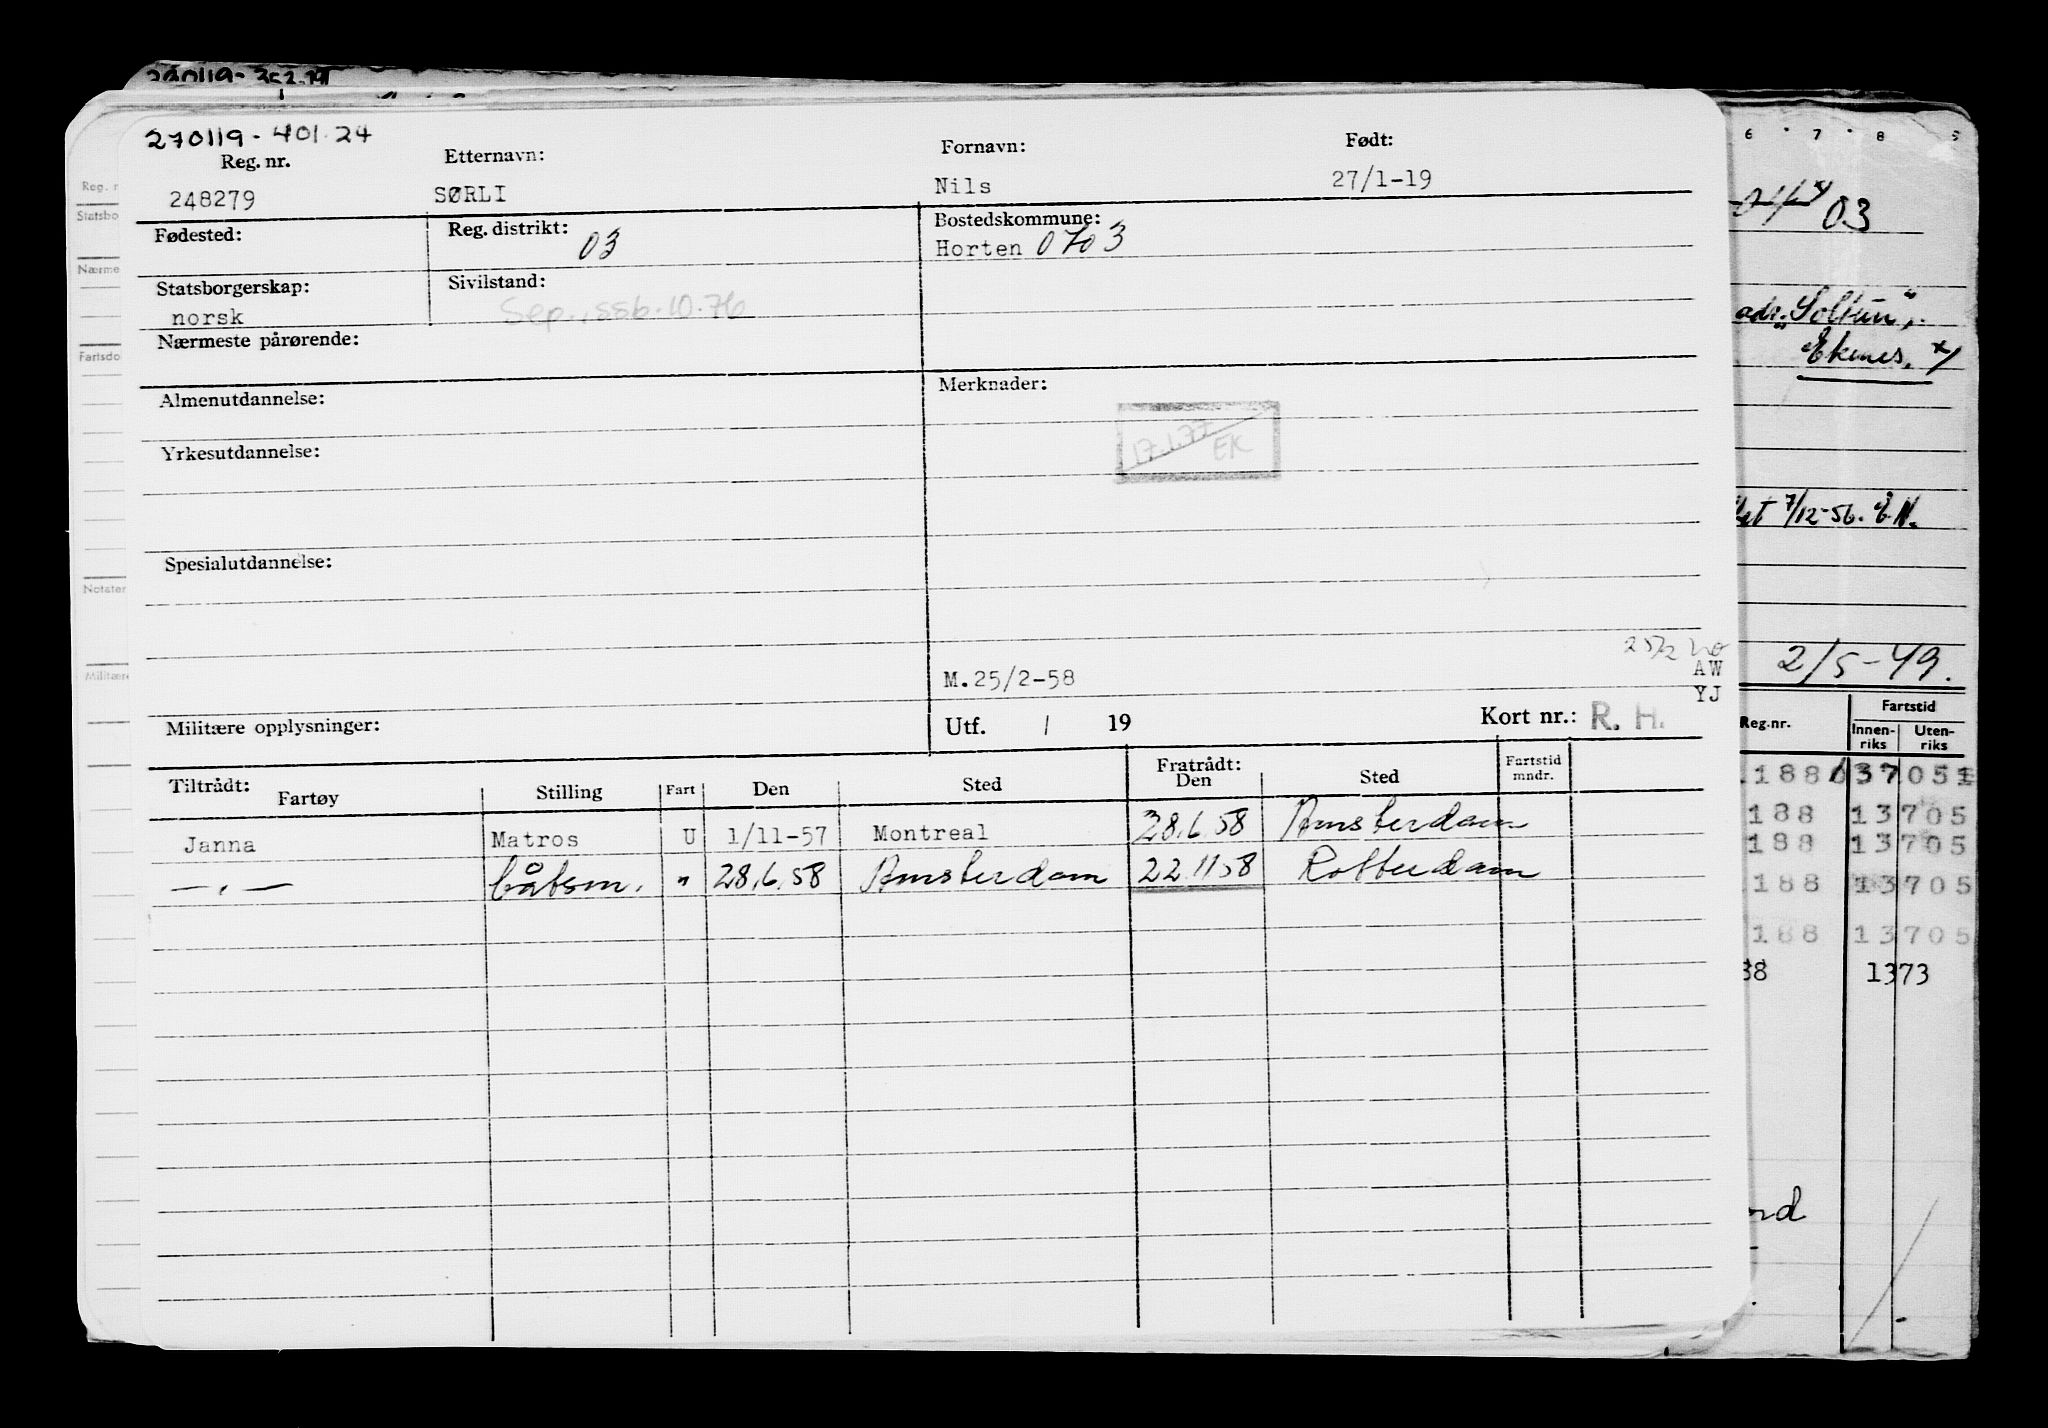 270119-352.19
270119-401.24
Reg. nr. Etternavn: Fornavn: Født:
248279 SØRLI Nils 27/1-19
Fødested: Reg. distrikt: 03 Bostedskommune:
Horten 0703
Statsborgerskap: Sivilstand:
norsk Sep., ssb. 10.76
Nærmeste pårørende:
Almenutdannelse: Merknader:
17.1.77
EK
Yrkesutdannelse:
Spesialutdannelse:
25/2
M.25/2-58 AW
YJ
Militære opplysninger: Utf. / 19 Kort nr.: R. H.
Tiltrådt: Fratrådt: Fartstid
Fartøy Stilling Fart Den Sted Den Sted mndr.
Janna Matros U 1/11-57 Montreal 28.6.58 Amsterdam
—„— båtsm. " 28.6.58 Amsterdam 22.11.58 Rotterdam
Reg. n
Statsbo
Nærme
Fartsdo
Notater
Militære
6 7 8
03
adr. "Soltun",
Ekenes. x/
7/12-56. E.N.
2/5-49.
Reg.nr. Fartstid
Innen-riks Uten-riks
188 13705
188 13705
188 13705
188 13705
38 1373